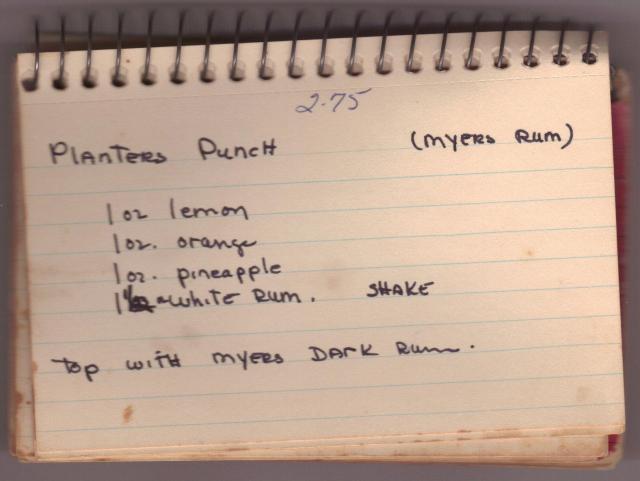 2.75
Planters Punch (Myers Rum)
1 oz lemon
1 oz. orange
1 oz. pineapple
1 White Rum. SHAKE
Top with Myers DARK Rum.